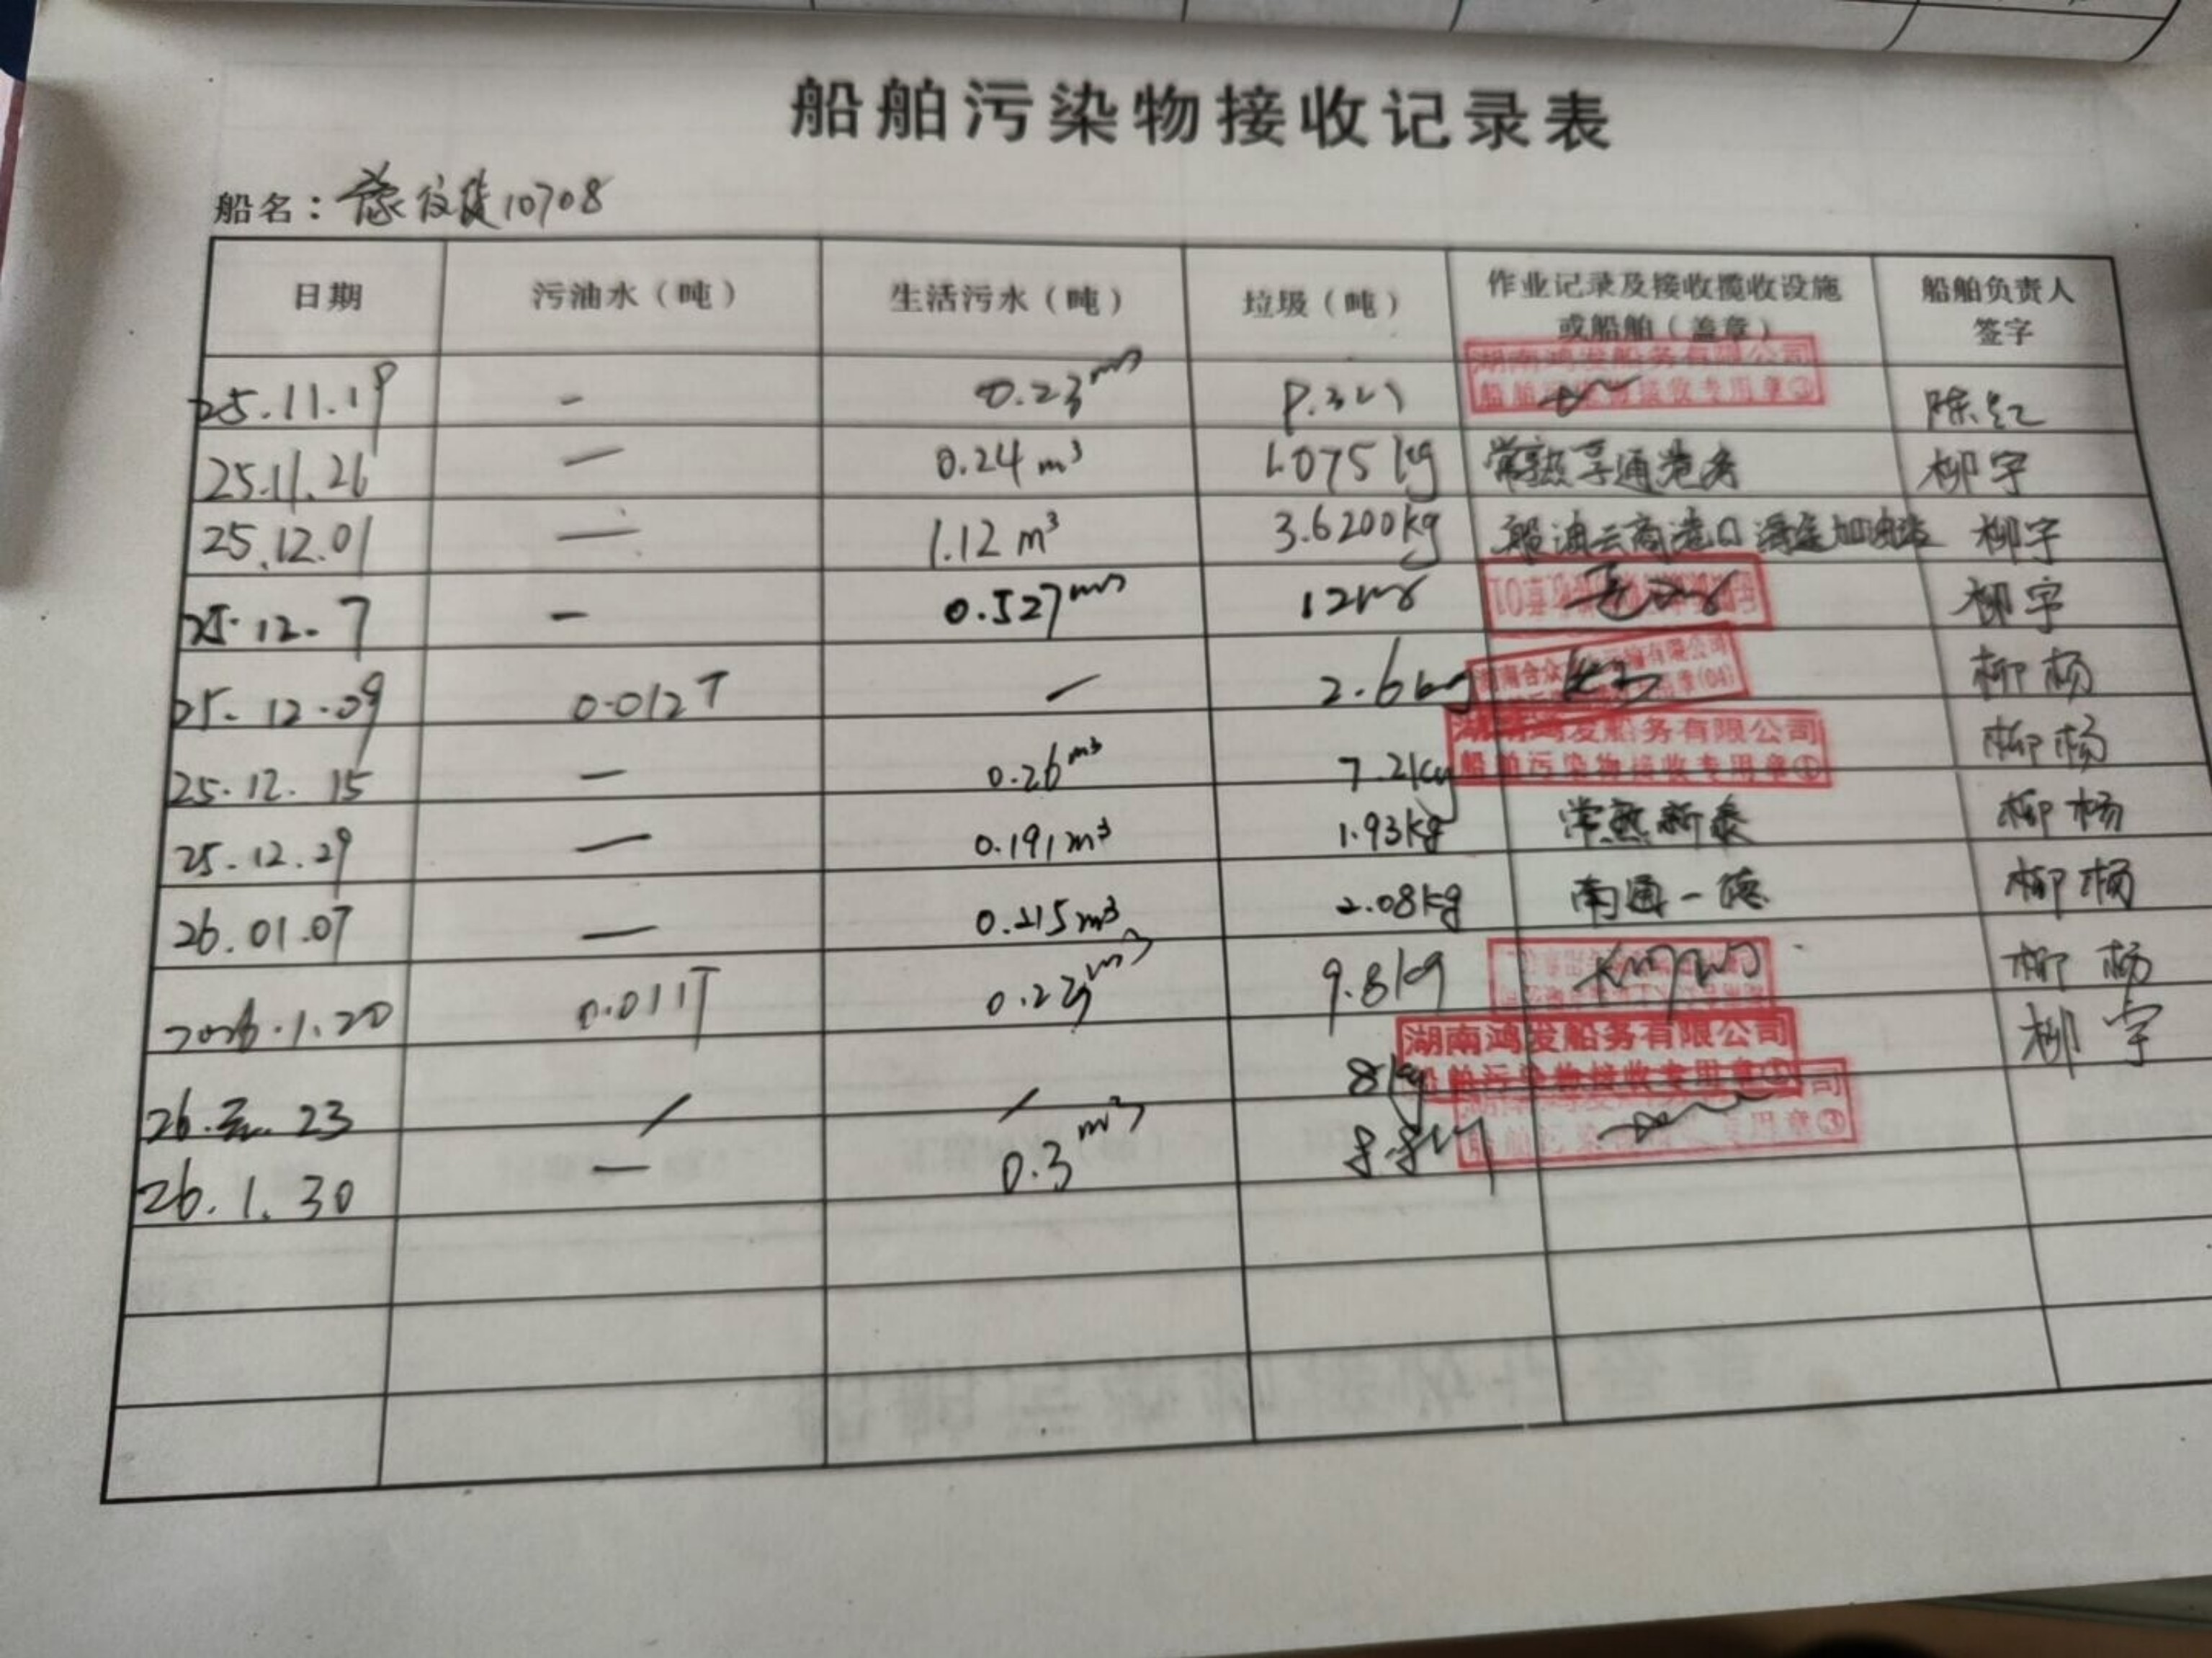 船舶污染物接收记录表
船名：豫信货10708
日期 污油水（吨） 生活污水（吨） 垃圾（吨） 作业记录及接收揽收设施或船舶（盖章） 船舶负责人签字
25.11.19 — 0.23m³ 湖南鸿发船务有限公司 船舶污染物接收专用章③ 陈红
25.11.26 — 0.24m³ 1.075kg 常熟孚通港务 柳宇
25.12.01 — 1.12m³ 3.6200kg 船油云商港口 柳宇
25.12.7 — 0.527m³ 12kg 柳宇
25.12.09 0.012T — 2.6kg 湖南合众 有限公司 (04) 柳杨
25.12.15 — 0.26m³ 7.2kg 湖南鸿发船务有限公司 船舶污染物接收专用章① 柳杨
25.12.29 — 0.191m³ 1.93kg 常熟新泰 柳杨
26.01.07 — 0.215m³ 2.08kg 南通一德 柳杨
2026.1.20 0.011T 0.229m³ 9.8kg 柳杨
26.元.23 / / 8kg 湖南鸿发船务有限公司 船舶污染物接收专用章 柳宇
26.1.30 — 0.3m³ 8.8kg 专用章③